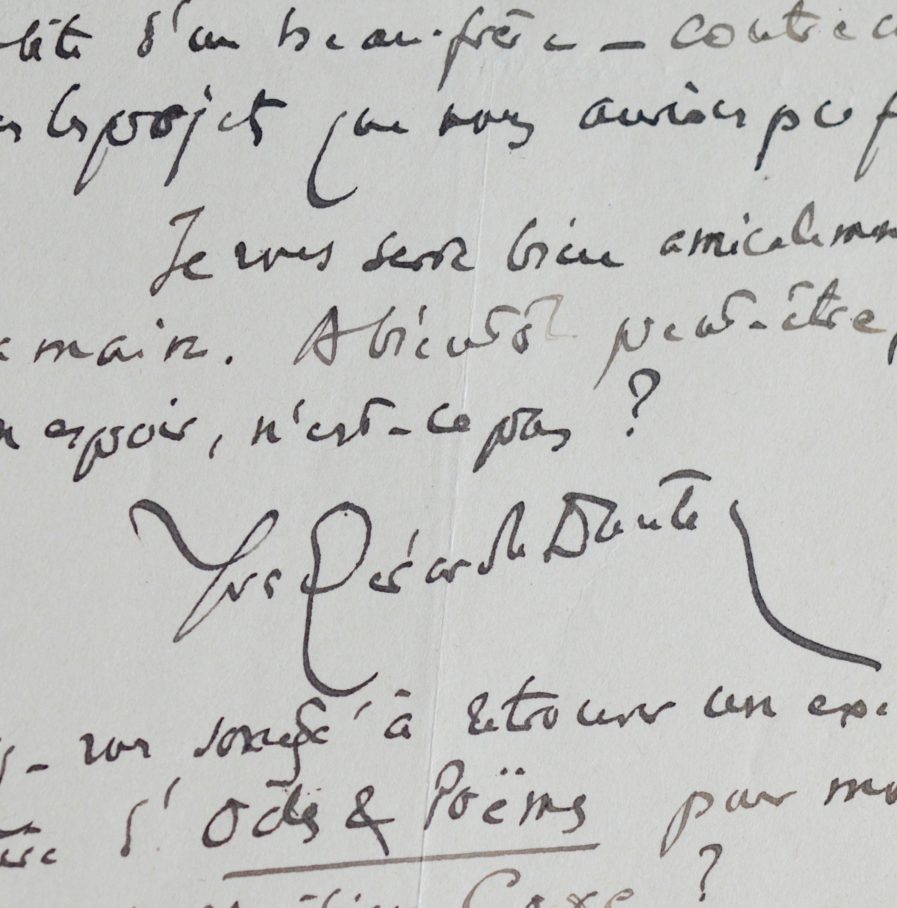 d'un beau-frère — contre
les projets que nous avions pu f
Je vous serre bien amicalemen
main. A bientôt peut-être,
espoir, n'est-ce pas ?
Yves Gérard le Dantec
vous songé à retrouver un exe
d'Odes & Poëmes pour mo
?